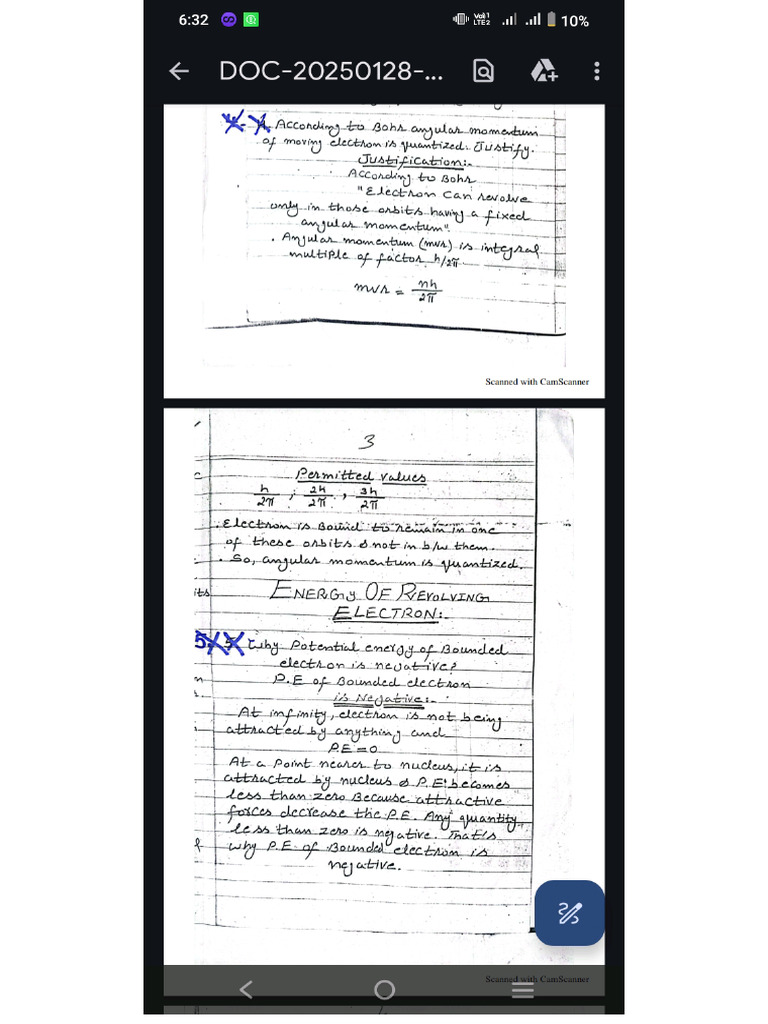 6:32
Vo)) 1
LTE2
10%
DOC-20250128-...
According to Bohr angular momentum
of moving electron is quantized. Justify.
Justification:-
According to Bohr
"Electron Can revolve
only in those orbits having a fixed
angular momentum".
. Angular momentum (mvr) is integral
multiple of factor h/2π
mvr = nh/2π
Scanned with CamScanner
3
Permitted values
h/2π ; 2h/2π , 3h/2π
. Electron is Bound to remain in one
of these orbits & not in b/w them.
. So, angular momentum is quantized.
ENERGY OF REVOLVING
ELECTRON:-
5. Why Potential energy of Bounded
electron is negative?
P.E of Bounded electron
is Negative:-
At infinity, electron is not being
attracted by anything and
P.E = 0
At a point nearer to nucleus, it is
attracted by nucleus & P.E becomes
less than zero Because attractive
forces decrease the P.E. Any quantity
less than zero is negative. That's
why P.E of Bounded electron is
negative.
Scanned with CamScanner